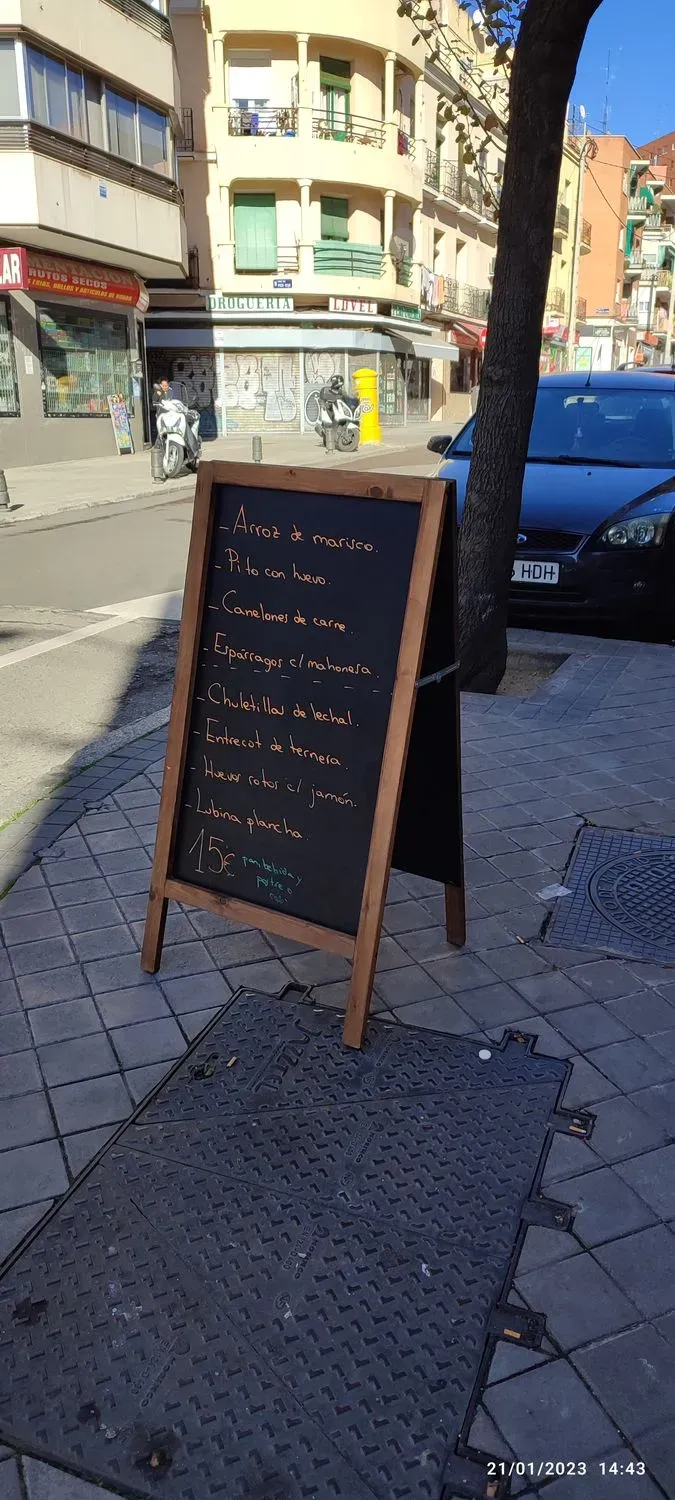 LAR
FRUTOS SECOS
DROGUERÍA
LOVEL
HDH
- Arroz de marisco.
- Pito con huevo.
- Canelones de carne.
- Espárragos c/ mahonesa.
- Chuletillas de lechal.
- Entrecot de ternera.
- Huevos rotos c/ jamón.
- Lubina plancha.
15€ pan, bebida y
postre o
café
21/01/2023 14:43